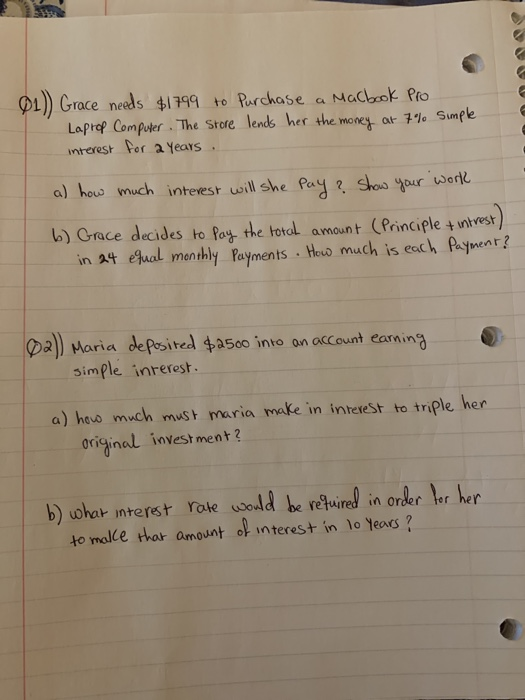 Q1)) Grace needs $1799 to Purchase a Macbook Pro
Laptop Computer. The store lends her the money at 7% simple
interest for 2 years.
a) how much interest will she Pay? Show your work
b) Grace decides to Pay the total amount (Principle + intrest)
in 24 equal monthly Payments. How much is each Payment?
Q2)) Maria deposited $2500 into an account earning
simple interest.
a) how much must maria make in interest to triple her
original investment?
b) what interest rate would be required in order for her
to make that amount of interest in 10 years?